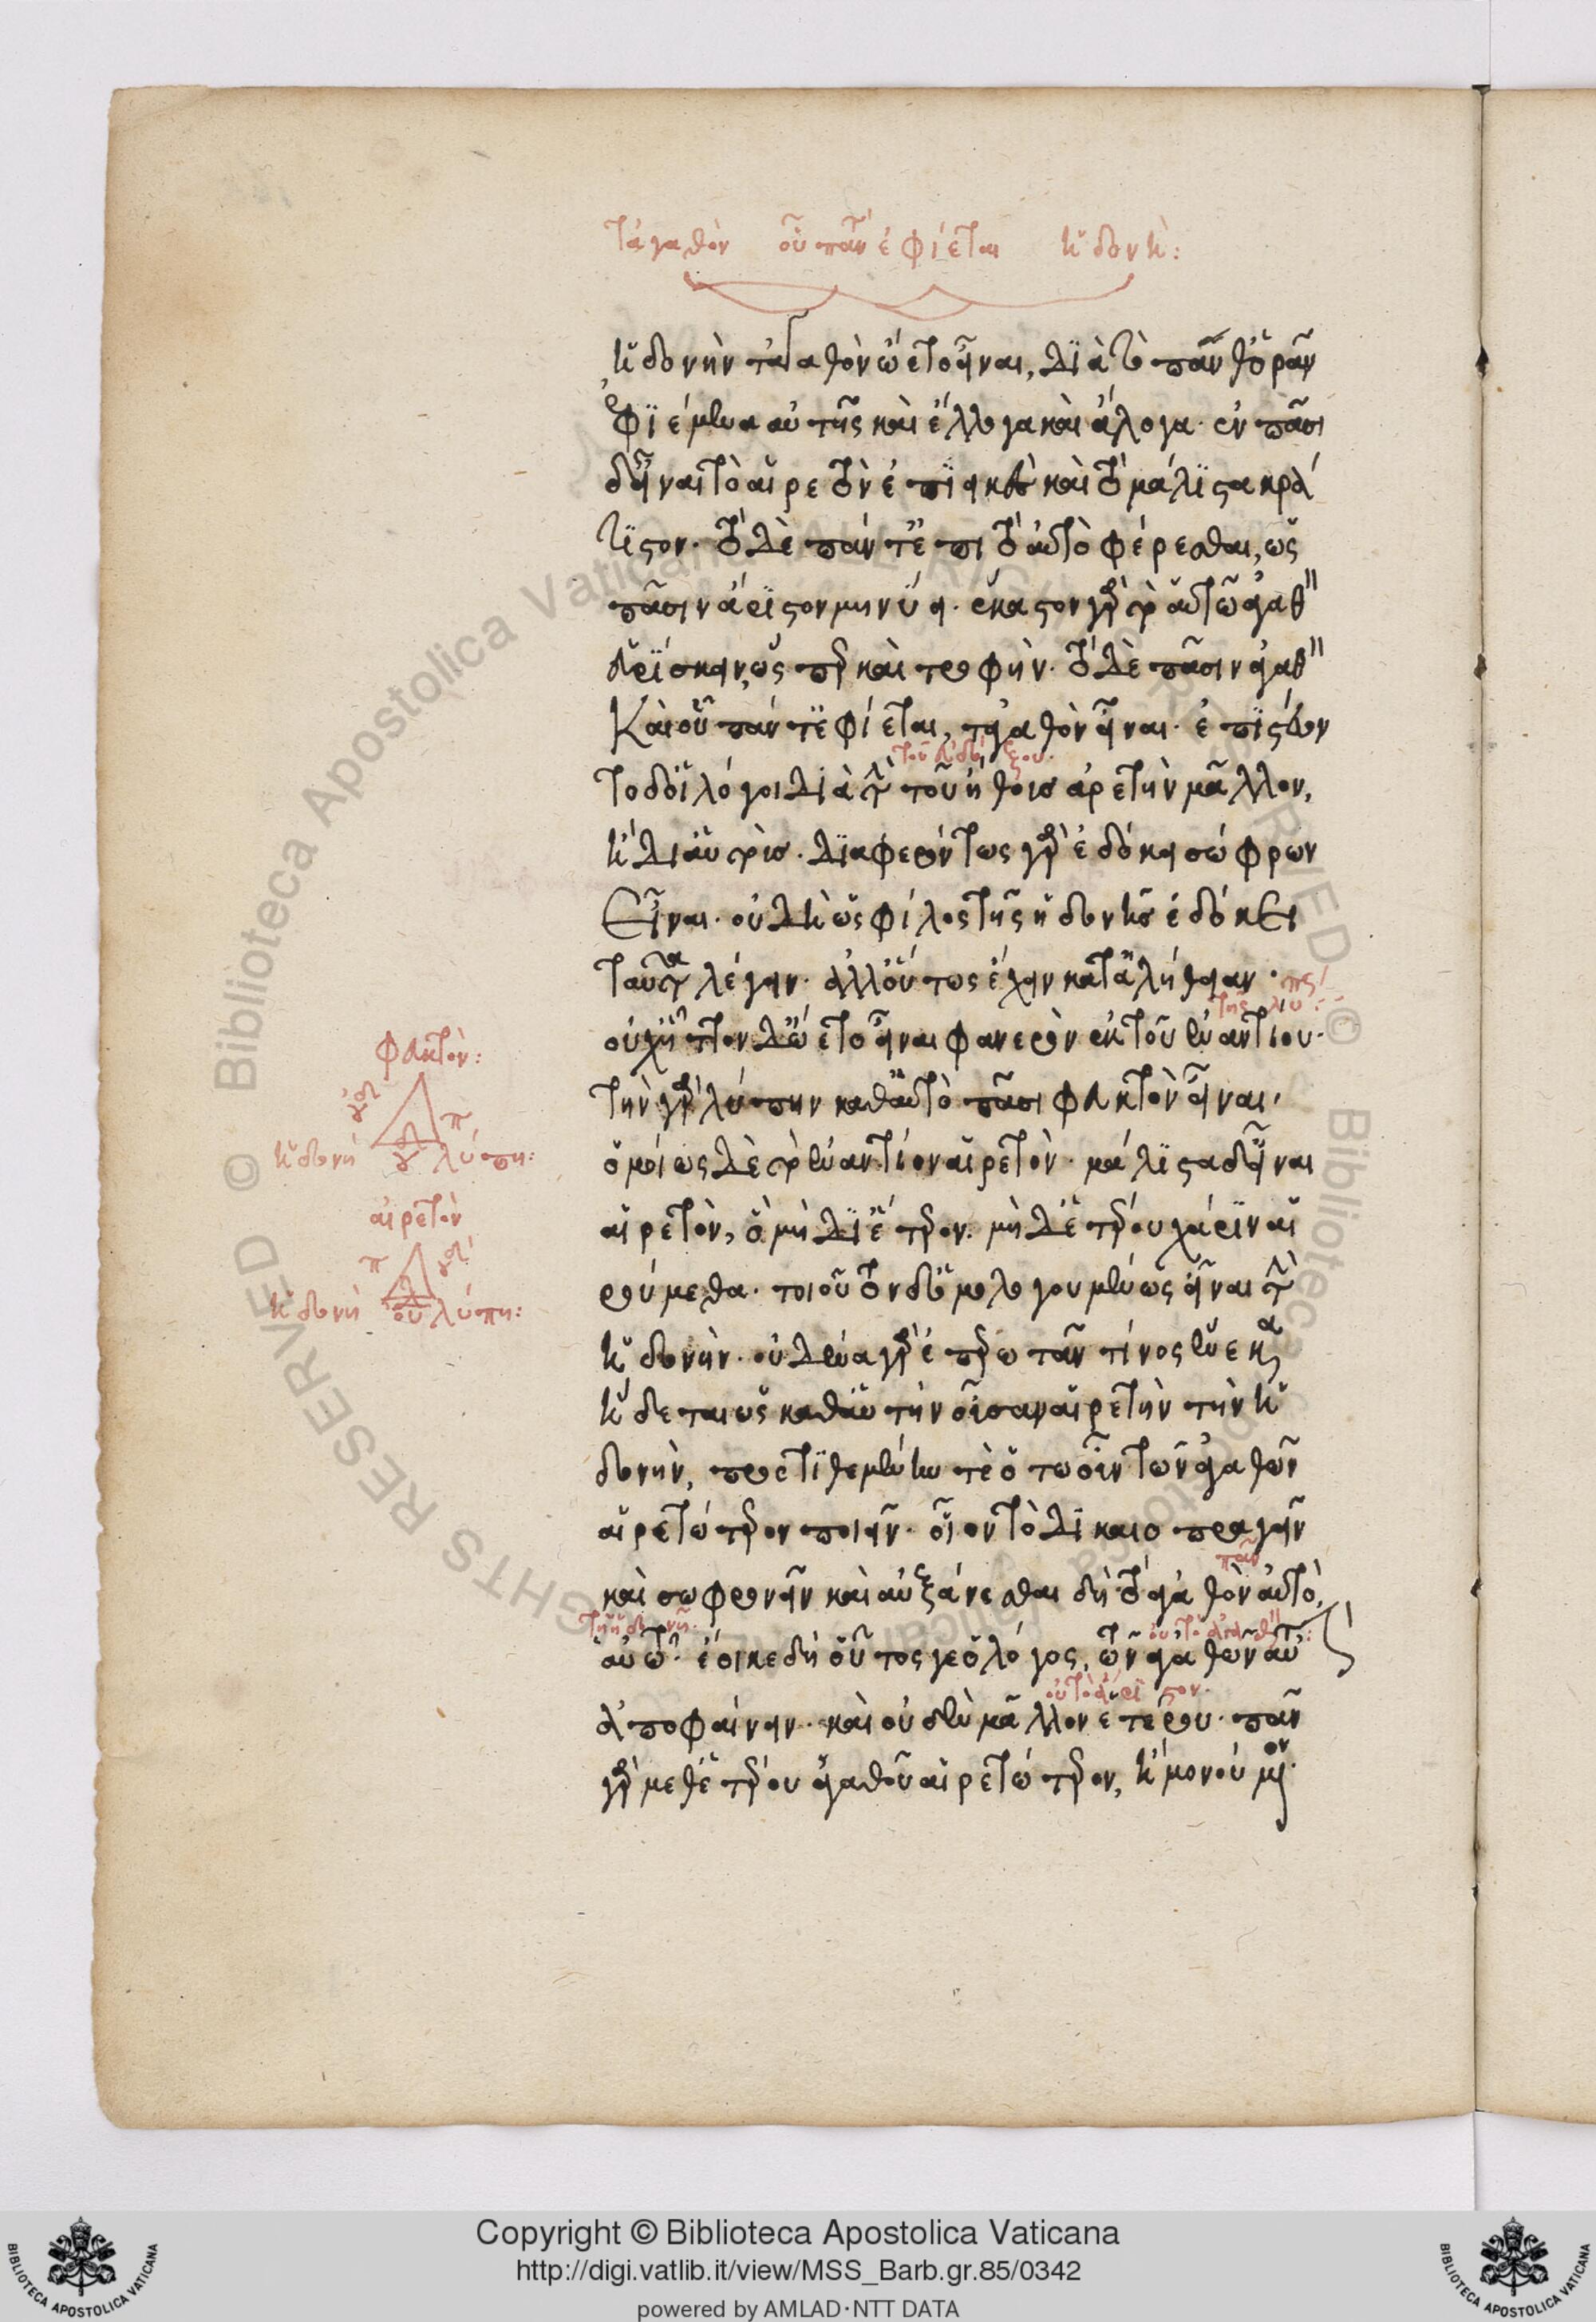 τἀγαθὸν οὗ πᾶν ἐφίεται ἡδονή:
ἡδονὴν τἀγαθὸν ὤετο εἶναι, διὰ τὸ πᾶνθ᾽ ὁρᾶν
ἐφιέμενα αὐτῆς καὶ ἔλλογα καὶ ἄλογα· ἐν πᾶσι
δ᾽ εἶναι τὸ αἱρετὸν ἐπιεικὲς καὶ τὸ μάλιστα κρά
τιστον· τὸ δὲ πάντ᾽ ἐπὶ τὸ αὐτὸ φέρεσθαι, ὡς
πᾶσιν ἄριστον μηνύει· ἕκαστον γὰρ τὸ αὑτῷ ἀγαθ
εὑρίσκειν, ὥσπερ καὶ τροφήν· τὸ δὲ πᾶσιν ἀγαθ
καὶ οὗ πάντ᾽ ἐφίεται, τἀγαθὸν εἶναι· ἐπιστεύον
τοῦ εὐδόξου·
το δ᾽ οἱ λόγοι διὰ τὴν τοῦ ἤθους ἀρετὴν μᾶλλον,
ἢ δι᾽ αὑτούς· διαφερόντως γὰρ ἐδόκει σώφρων
εἶναι· οὐ δὴ ὡς φίλος τῆς ἡδονῆς ἐδόκει
ταῦτα λέγειν· ἀλλ᾽ οὕτως ἔχειν κατ᾽ ἀλήθειαν·
τῆς λύπης:
οὐχ ἧττον δ᾽ ὤετο εἶναι φανερὸν ἐκ τοῦ ἐναντίου·
τὴν γὰρ λύπην καθ᾽ αὑτὸ πᾶσι φευκτὸν εἶναι,
ὁμοίως δὲ τὸ ἐναντίον αἱρετὸν· μάλιστα δ᾽ εἶναι
αἱρετὸν, ὃ μὴ δι᾽ ἕτερον· μὴ δ᾽ ἑτέρου χάριν αἱ
ρούμεθα· τοιοῦτον δ᾽ ὁμολογουμένως εἶναι τὴν
ἡδονὴν· οὐδένα γὰρ ἐπερωτᾶν τίνος ἕνεκα
ἥδεται ὡς καθ᾽ αὑτὴν οὖσαν αἱρετὴν τὴν ἡ
δονὴν, προστιθεμένην τε ὁτῳοῦν τῶν ἀγαθῶν
αἱρετώτερον ποιεῖν· οἷον τὸ δικαιοπραγεῖν
πᾶν
καὶ σωφρονεῖν καὶ αὐξάνεσθαι δὴ τὸ ἀγαθὸν αὐτὸ,
τῇ ἡδονῇ·
αὑτῷ· ἔοικε δὴ οὗτός γε ὁ λόγος, τῶν ἀγαθῶν αὐτ
ἀποφαίνειν· καὶ οὐδὲν μᾶλλον ἑτέρου· πᾶν
γὰρ μεθ᾽ ἑτέρου ἀγαθοῦ αἱρετώτερον, ἢ μονούμενον·
φευκτὸν:
ἡδονή λύπη:
αἱρετὸν
ἡδονή οὐ λύπη:
Copyright © Biblioteca Apostolica Vaticana
http://digi.vatlib.it/view/MSS_Barb.gr.85/0342
powered by AMLAD·NTT DATA
BIBLIOTECA APOSTOLICA VATICANA
BIBLIOTECA APOSTOLICA VATICANA